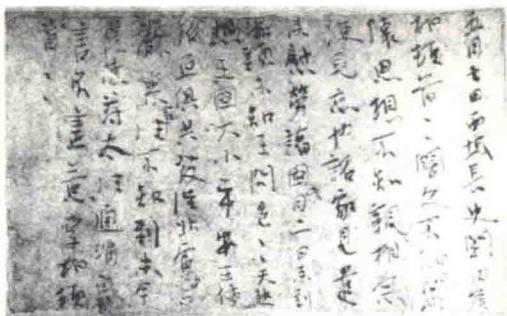 五月七日西域長史關內侯
柏頓首〻闊久不相聞
懷思想不知親相念
便見忘也詔家見遣
慰勞諸國月二日來到
海頭未知王問邑〻天熱
想王國大小平安王使
俱共發從北虜中
嚴參事往不知到未今
遣使苻太往通消息
書不盡意李柏頓
首〻